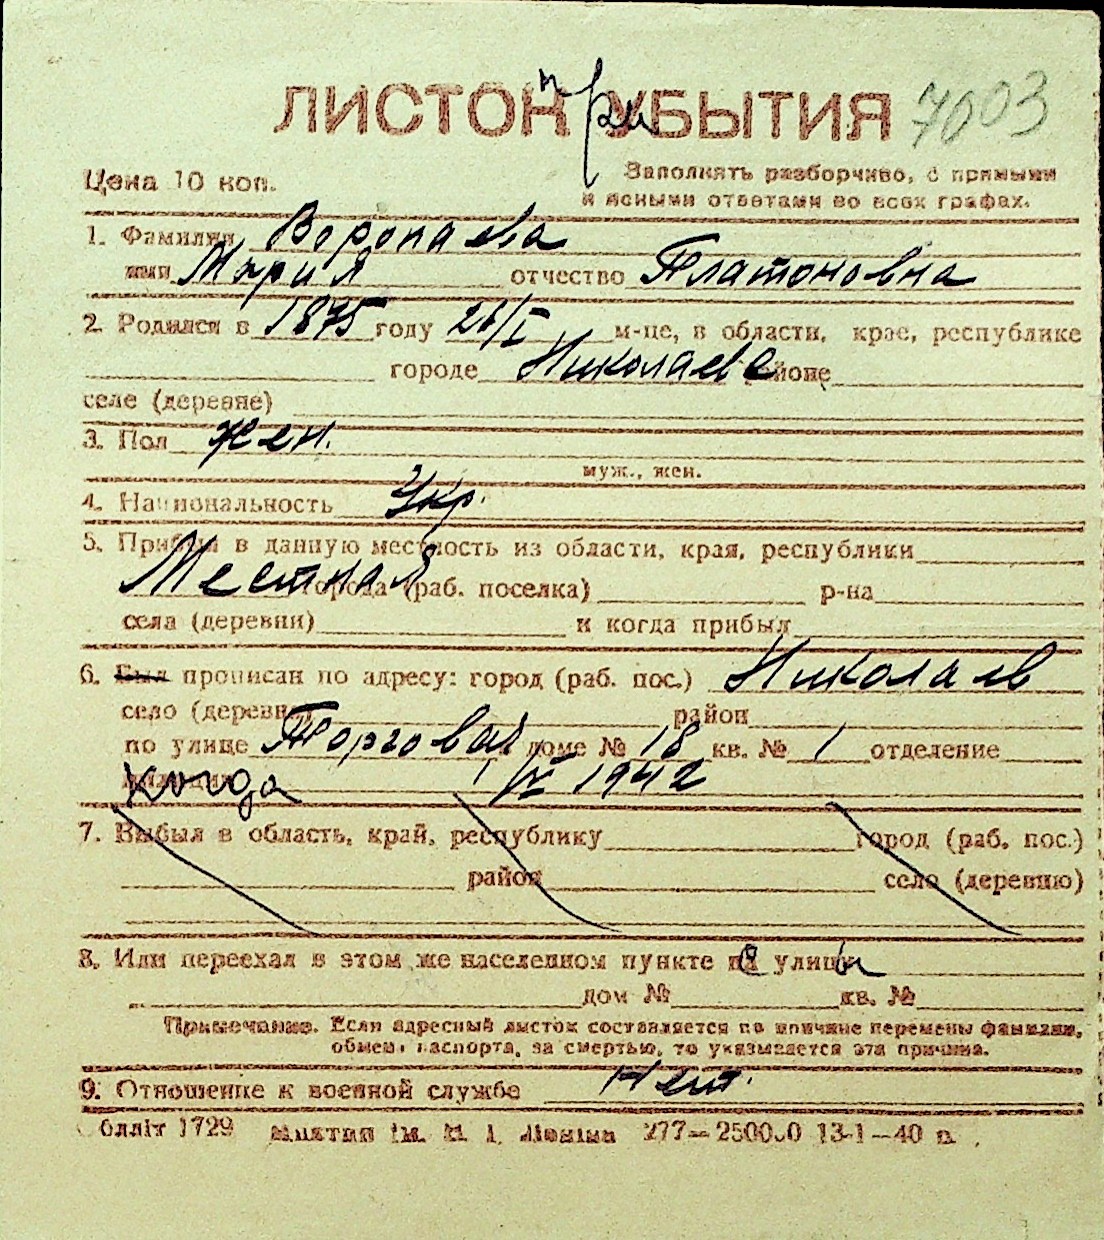 ЛИСТОК при УБЫТИЯ 7003
Цена 10 коп. Заполнять разборчиво, с прямыми
и ясными ответами во всех графах.
1. Фамилия Воропаева
имя Мария отчество Платоновна
2. Родился в 1875 году 26/I м-це, в области, крае, республике
городе Николаеве районе
селе (деревне)
3. Пол жен.
муж., жен.
4. Национальность Укр.
5. Прибыл в данную местность из области, края, республики
Местная города (раб. поселка) р-на
села (деревни) и когда прибыл
6. Был прописан по адресу: город (раб. пос.) Николаев
село (деревня) район
по улице Торговая доме № 18 кв. № 1 отделение
когда 1/IV 1942
7. Выбыл в область, край, республику город (раб. пос.)
район село (деревню)
8. Или переехал в этом же населенном пункте с улицы
дом № кв. №
Примечание. Если адресный листок составляется по причине перемены фамилии,
обмена паспорта, за смертью, то указывается эта причина.
9. Отношение к военной службе Нет.
Облліт 1729 ім. Леніна 277—250000 13-1—40 р.